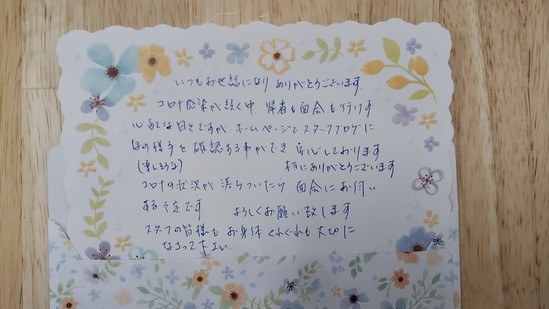 いつもお世話になり ありがとうございます
コロナ感染が続く中 帰省も面会も行けず
心配な日々ですが、ホームページでスタッフブログに
母の様子を確認する事ができ 安心しております
(楽しそうな) 本当にありがとうございます
コロナの状況が落ちついたら 面会にお伺い
する予定です よろしくお願い致します
スタッフの皆様も お身体くれぐれも大切に
なさって下さい